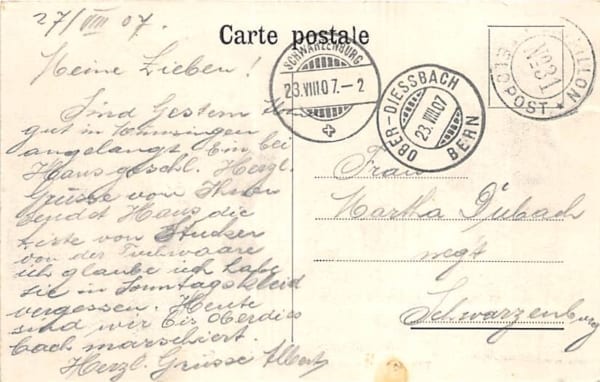 27/VIII 07.
Carte postale
Meine Lieben!
Sind Gestern
gut in Münsingen
angelangt Ein bei
Hans geschl. Herzl.
Grüsse von Ihnen
sendet Hans die
Liste von Stucker
von der Tuchwaare
ich glaube ich habe
sie in Sonntagskleid
vergessen. Heute
sind wir bis Oberdies
bach marschiert.
Herzl. Grüsse Albert
SCHWARZENBURG
23.VIII.07.-2
OBER-DIESSBACH
23.VIII.07
BERN
No 31
POST
Frau
Martha Dübach
negt
Schwarzenburg